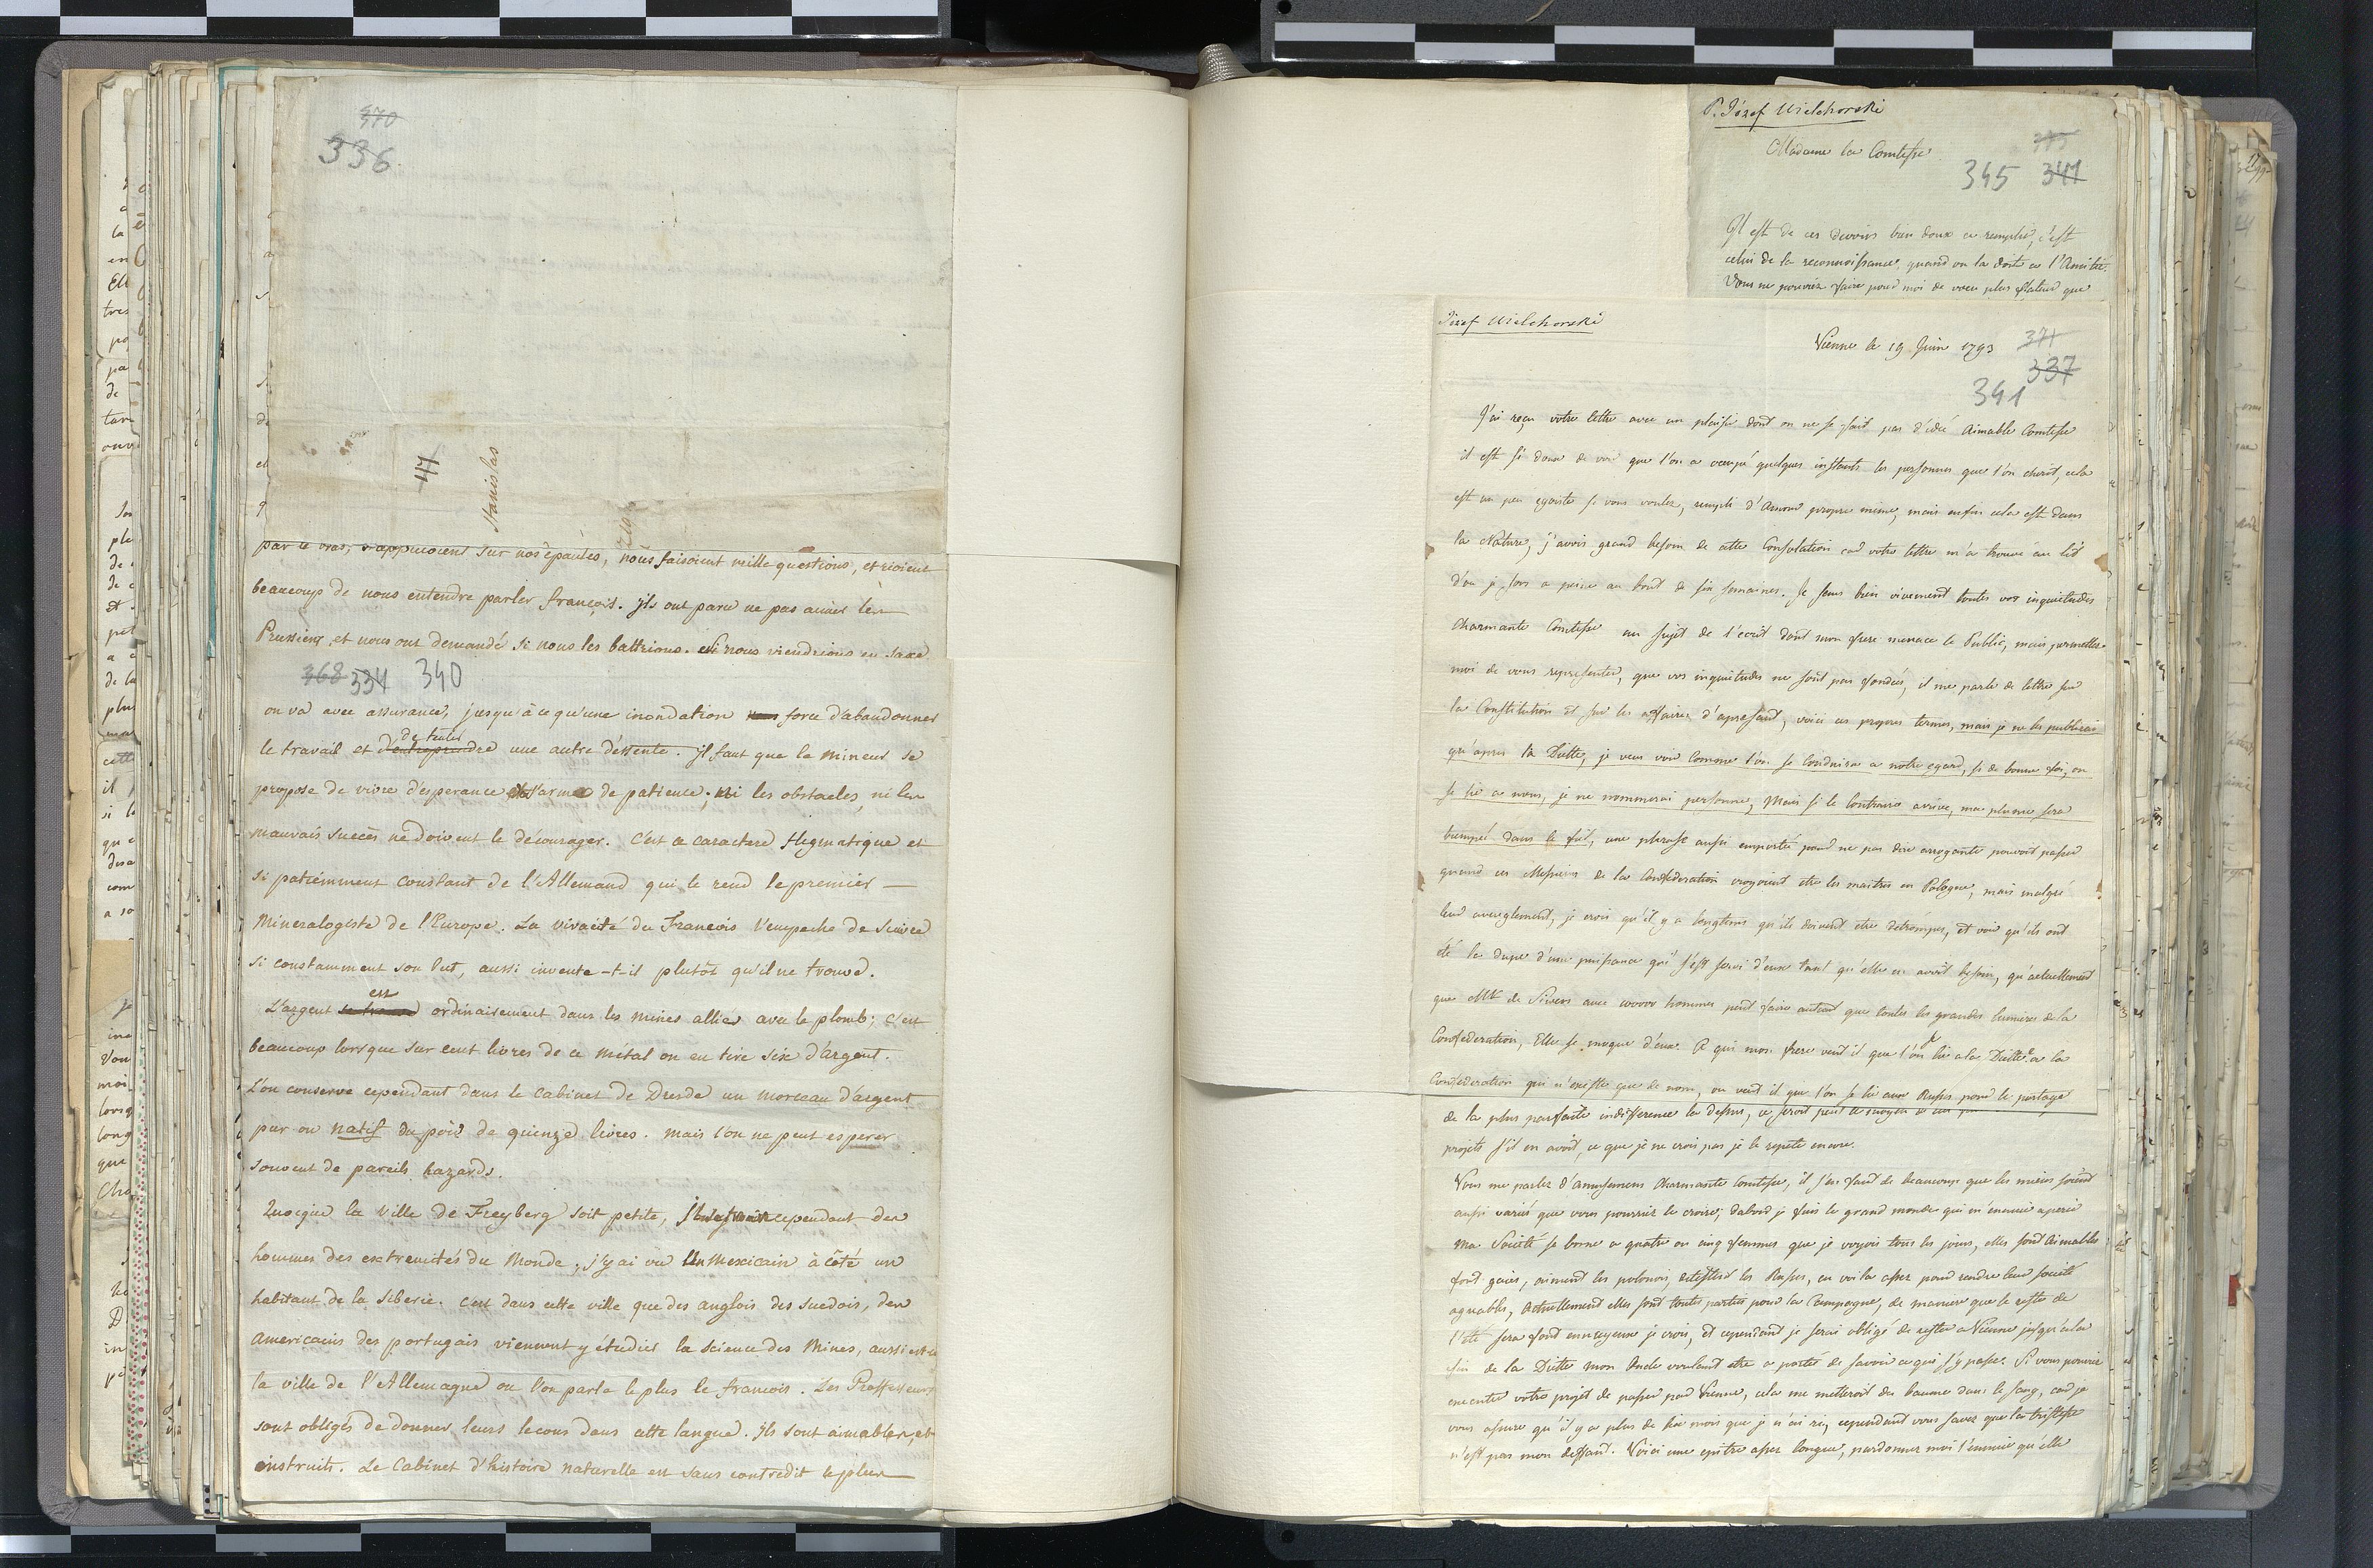 370
336
47
Stanislas
par le bras, s'appuioient sur nos épaules, nous faisoient mille questions, et rioient
beaucoup de nous entendre parler françois. jls ont paru ne pas aimer les
Prussiens et nous ont demandé si nous les battrions. si nous viendrions en Saxe
368 334 340
on va avec assurance, jusqu'à ce qu'une inondation force d'abandonner
le travail et d'entreprendre de tenter une autre déssente. jl faut que le mineur se
propose de vivre d'esperance s'arme de patience; ni les obstacles, ni les
mauvais succès ne doivent le décourager. C'est ce caractere flegmatique et
si patiemment constant de l'Allemand qui le rend le premier
Mineralogiste de l'Europe. La vivacité du Francois l'empeche de suivre
si constamment son but, aussi invente-t-il plutôt qu'il ne trouve.
L'argent est ordinairement dans les mines allié avec le plomb; c'est
beaucoup lorsque sur cent livres de ce métal on en tire six d'argent.
L'on conserve cependant dans le Cabinet de Dresde un morceau d'argent
pur ou natif du poid de quinze livres. mais l'on ne peut esperer
souvent de pareils hazards.
Quoique la ville de Freyberg soit petite, cependant des
hommes des extremités du Monde, j'y ai vu un Mexicain à côté un
habitant de la Siberie. C'est dans cette ville que des anglois des suedois, des
americains des portugais viennent y étudier la science des Mines, aussi est-ce
la ville de l'Allemagne ou l'on parle le plus le francois. Les Professeurs
sont obligés de donner leurs lecons dans cette langue. jls sont aimables, et
instruits. Le Cabinet d'histoire naturelle est sans contredit le plus
P. Józef Wielhorski
Madame la Comtesse
345 341
Il est de ces devoirs bien doux a remplir, c'est
celui de la reconnoissance, quand on la doit a l'Amitié.
Vous ne pouviez faire pour moi de voeu plus flateur que
Józef Wielhorski
Vienne le 19 Juin 1793
371
337
341
J'ai reçu votre lettre avec un plaisir dont on ne se fait pas d'idée Aimable Comtesse
il est si doux de voir que l'on a occupé quelques instants les personnes que l'on cherit, cela
est un peu egoiste si vous voulez, rempli d'Amour propre meme, mais enfin cela est dans
la Nature, j'avois grand besoin de cette Consolation car votre lettre m'a trouvé au lit
d'ou je sors a peine au bout de six semaines. Je sens bien vivement toutes vos inquietudes
Charmante Comtesse au sujet de l'ecrit dont mon frere menace le Public, mais permettez
moi de vous representer, que vos inquietudes ne sont pas fondées, il me parle de lettre sur
la Constitution et sur les affaires d'apresent, voici ces propres termes, mais je ne les publierai
qu'apres la Diette, je veux voir comme l'on se conduira a notre egard, si de bonne foi, on
se fie a nous, je ne nommerai personne, Mais si le contraire arrive, ma plume sera
trempée dans le fiel, une phrase aussi emportée pour ne pas dire arrogante pouvoit passer
quand ces Messieurs de la Confederation croyoient etre les maitres en Pologne, mais malgré
leur aveuglement, je crois qu'il y a longtems qu'ils doivent etre detrompés, et voir qu'ils ont
été la dupe d'une puissance qui s'est servi d'eux tant qu'elle en avoit besoin, qu'actuellement
que Mr de Sivers avec 100000 hommes peut faire autant que toutes les grandes lumieres de la
Confederation, Elle se moque d'eux. A qui mon frere veut il que l'on se fie a la Diette? a la
Confederation qui n'existe que de nom, ou veut il que l'on se fie aux Russes pour le partage
de la plus parfaite indifference la dessus, ce seroit peut
projets s'il en avoit, ce que je ne crois pas je le repete encore.
Vous me parlez d'amusemens Charmante Comtesse, il s'en faut de beaucoup que les miens soient
aussi variés que vous pourriez le croire; dabord je fuis le grand monde qui m'ennuie a perir
ma Société se borne a quatre ou cinq femmes que je voyois tous les jours, elles sont Aimables
sont gaies, aiment les polonois, detestent les Russes, en voila assez pour rendre leur société
agreable, Actuellement elles sont toutes parties pour la Campagne, de maniere que le reste de
l'été sera fort ennuyeux je crois, et cependant je serai obligé de rester a Vienne jusqu'a la
fin de la Diette mon Oncle voulant etre a portée de savoir ce qui s'y passe. Si vous pouviez
executer votre projet de passer par Vienne, cela me metteroit du baume dans le sang, car je
vous assure qu'il y a plus de six mois que je n'ai ri, cependant vous savez que la tristesse
n'est pas mon deffaut. Voici une epitre assez longue, pardonnez moi l'ennui qu'elle